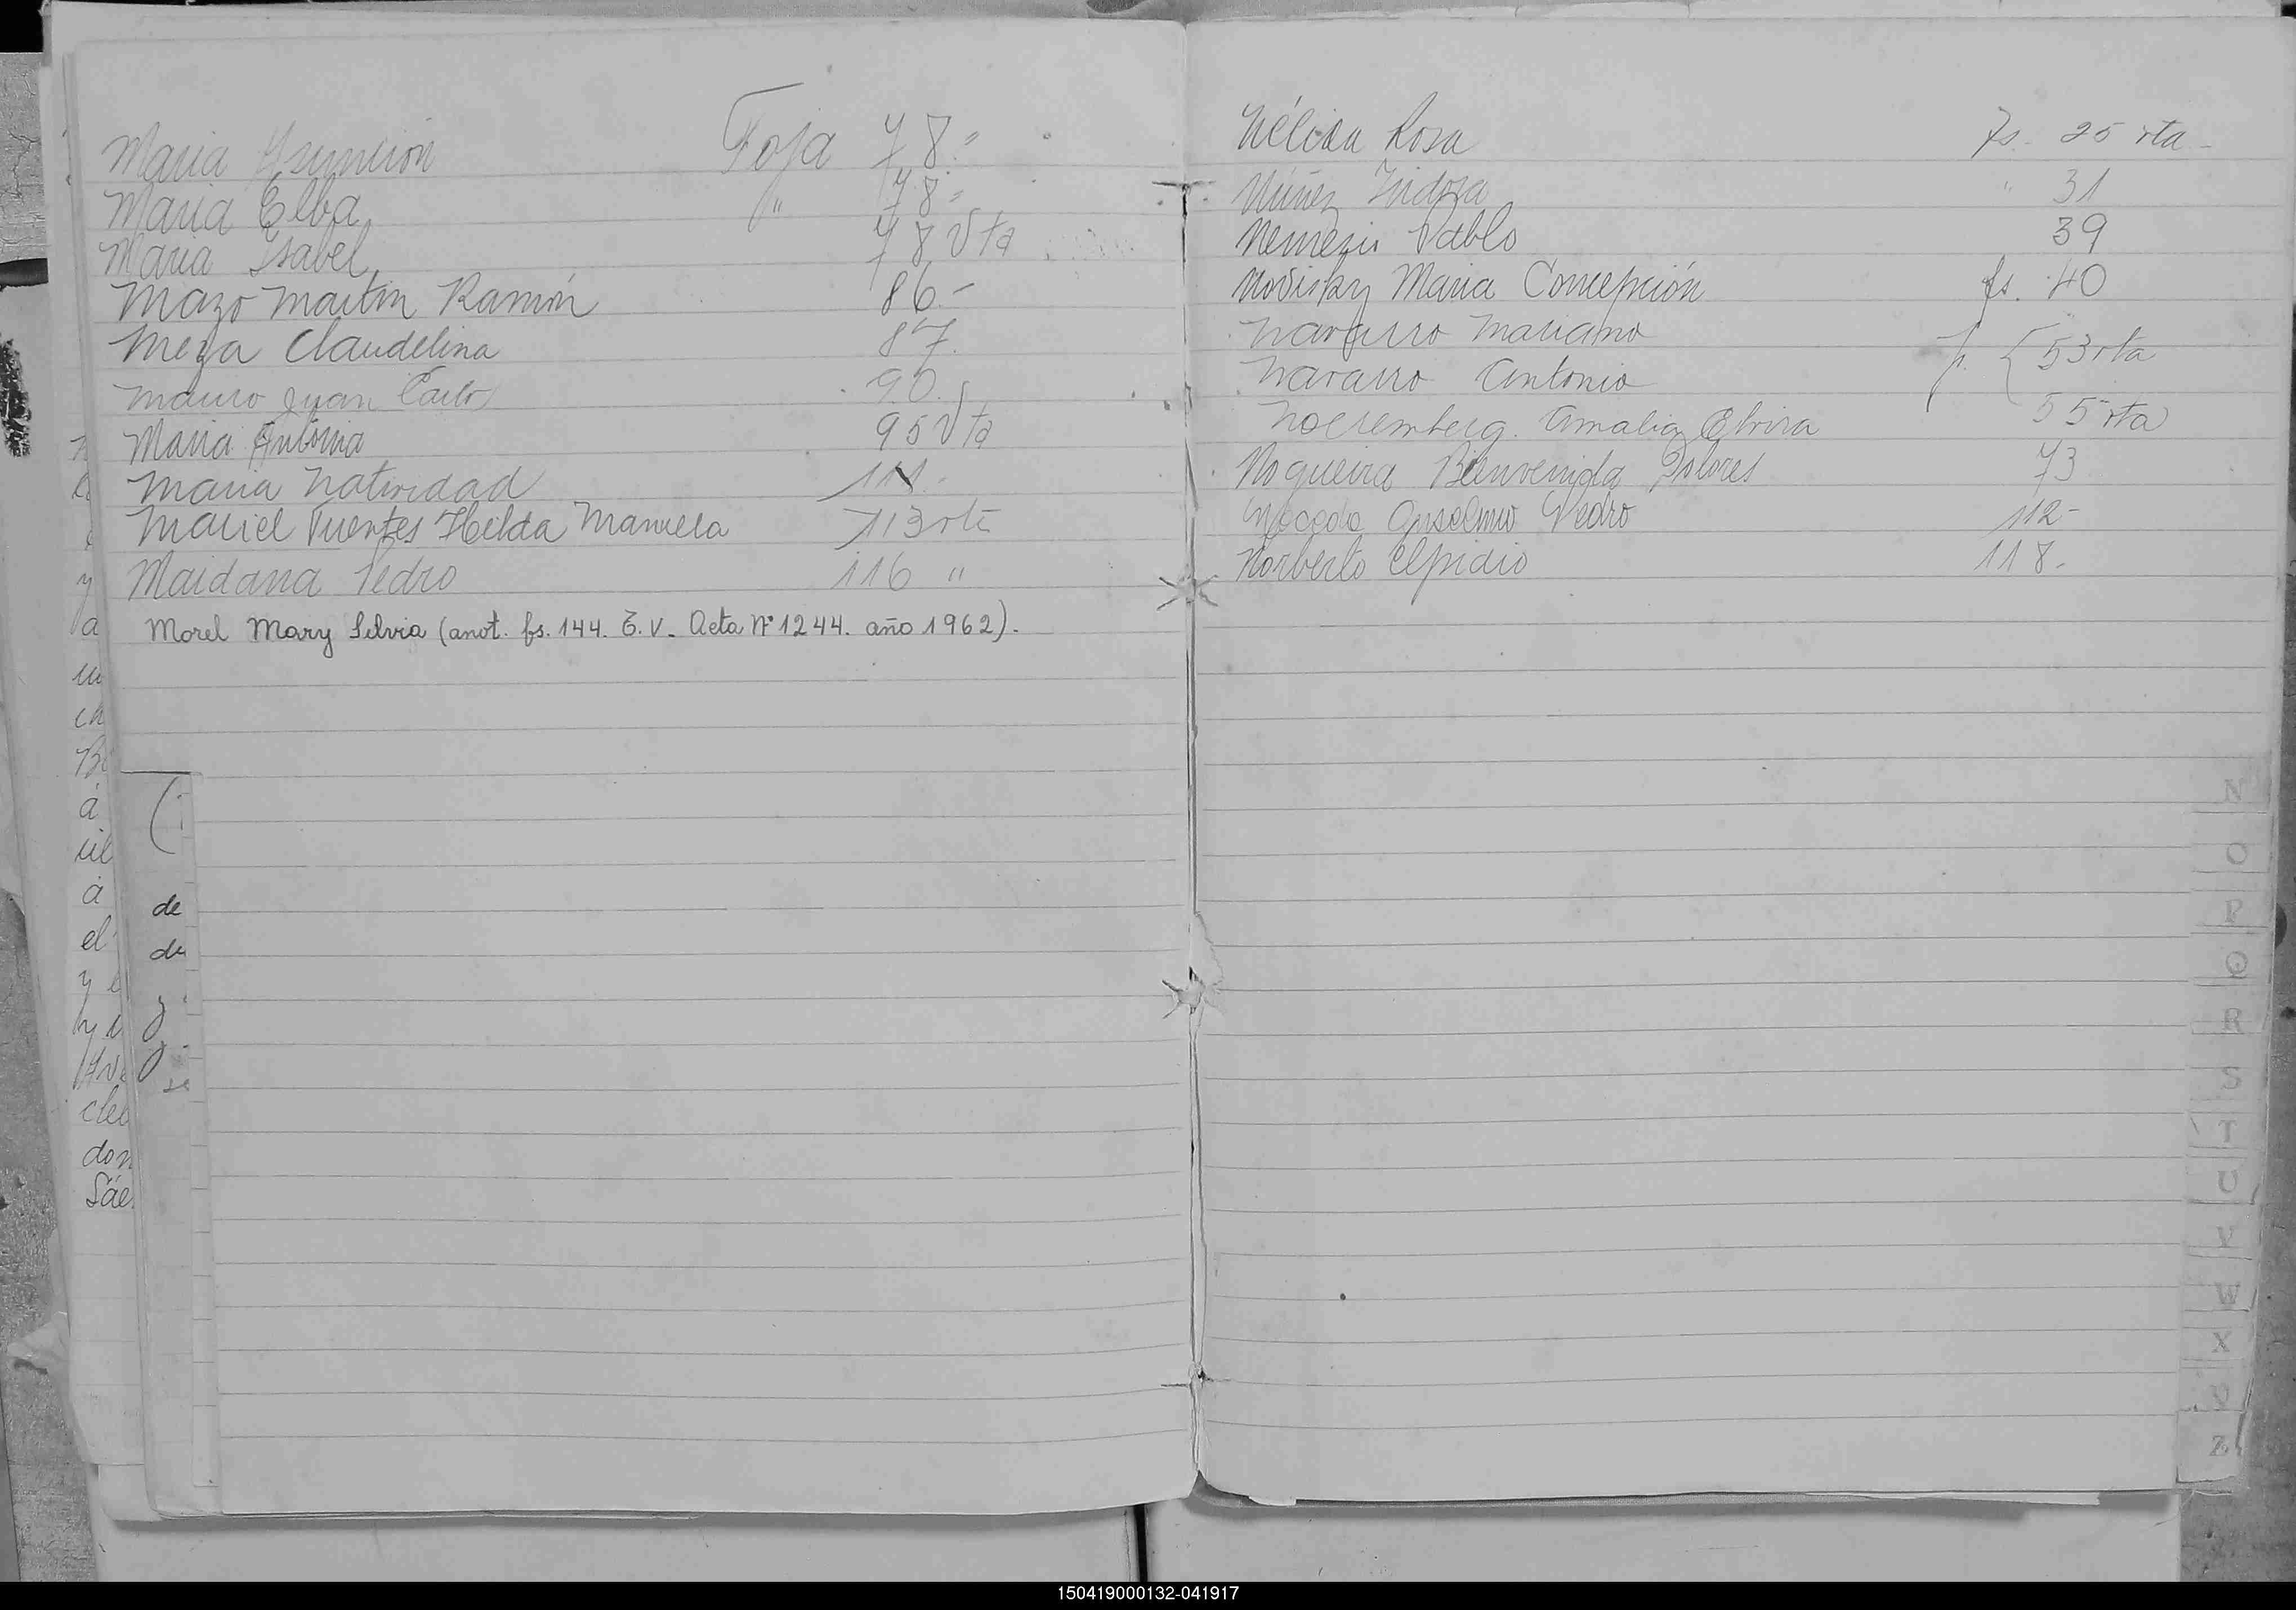 Maria Asunción Foja 78.=
Maria Elba " 78=
Maria Isabel 78 Vta
Mazo Martin Ramón 86.-
Meza Claudelina 87.
Mauro Juan Carlos 90.
Maria Antonia 95 Vta
Maria Natividad 111.-
Maciel Fuentes Hilda Manuela 113 vta
Maidana Pedro 116 "
Morel Mary Silvia (anot. fs. 144. T. V. Acta Nº 1244. año 1962).
Nélida Rosa Fs. 25 vta -
Núñez Isidora " 31
Nemesio Pablo 39
Novisky Maria Concepción fs. 40
Navarro Mariano
Navarro Antonio f. { 53 vta
Noeremberg. Amalia Elvira 55 vta
Nogueira Bienvenida Dolores 73
Anselmo Pedro 112-
Norberto Elpidio 118.
a
el
de
don
Sáe
N
O
P
Q
R
S
T
U
V
W
X
Z
150419000132-041917